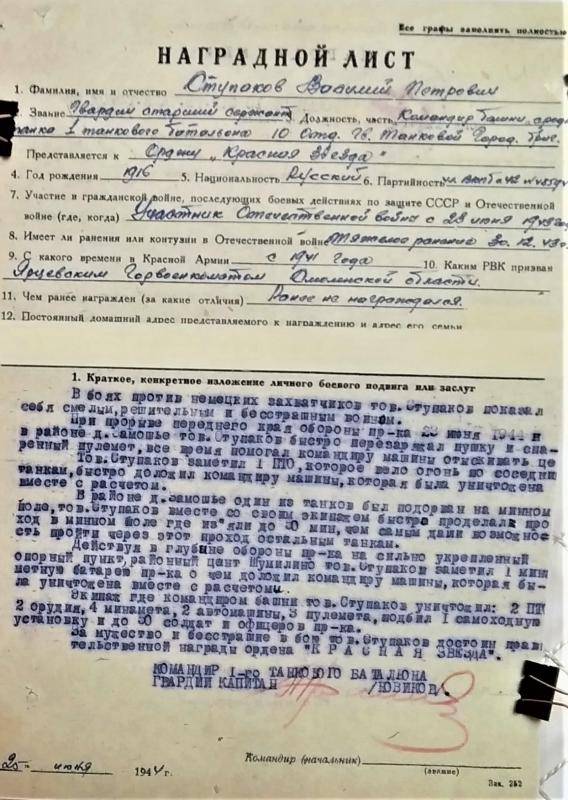 Все графы заполнять полностью
НАГРАДНОЙ ЛИСТ
1. Фамилия, имя и отчество Ступаков Василий Петрович
Звание Гвардии старший сержант Должность, часть Командир башни сред
танка 1 танкового батальона 10 Отд. Гв. Танковой Город. Бриг.
Представляется к Ордену „Красная Звезда"
4. Год рождения 1916 5. Национальность Русский 6. Партийность ВКПб
7. Участие в гражданской войне, последующих боевых действиях по защите СССР и Отечественной
войне (где, когда) Участник Отечественной войны с 23 июня
8. Имеет ли ранения или контузии в Отечественной войне Тяжелое ранение 30.12.43
9. С какого времени в Красной Армии с 1941 года 10. Каким РВК призван
Ярцевским Горвоенкоматом Смоленской области.
11. Чем ранее награжден (за какие отличия) Ранее не награждался.
12. Постоянный домашний адрес представляемого к награждению и адрес его семьи
1. Краткое, конкретное изложение личного боевого подвига или заслуг
В боях против немецких захватчиков тов. Ступаков показал
себя смелым, решительным и бесстрашным воином.
При прорыве переднего края обороны пр-ка 23 июня 1944
в районе д. Замошье тов. Ступаков быстро перезаряжал пушку и спа-
ренный пулемет, все время помогал командиру машины отыскивать це
Тов. Ступаков заметил 1 ПТО, которое вело огонь по соседним
танкам, быстро доложил командиру машины, которая была уничтожена
вместе с расчетом.
В районе д. Замошье один из танков был подорван на минном
поле, тов. Ступаков вместе со своим экипажем быстро проделал про
ход в минном поле где из'яли до 30 мин, тем самым дали возможно
сть пройти через этот проход остальным танкам.
Действуя в глубине обороны пр-ка на сильно укрепленный
опорный пункт, районный цент Шумилино тов. Ступаков заметил 1 мино
метную батарею пр-ка о чем доложил командиру машины, которая бы-
ла уничтожена вместе с расчетом.
Экипаж где командиром башни тов. Ступаков уничтожил: 2 ПТО
2 орудия, 4 минамета, 2 автомашины, 3 пулемета, подбил 1 самоходную
установку и до 30 солдат и офицеров пр-ка.
За мужество и бесстрашие в бою тов. Ступаков достоин прави
тельственной награды ордена "КРАСНАЯ ЗВЕЗДА".
КОМАНДИР 1-го ТАНКОВОГО БАТАЛЬОНА
ГВАРДИИ КАПИТАН /НОВИКОВ/.
25 июня 1944 г.
Командир (начальник)
(звание)
Зак. 252